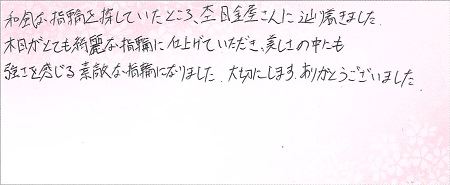 和風な指輪を探していたところ、杢目金屋さんに辿り着きました.
木目がとても綺麗な指輪に仕上げていただき、美しさの中にも
強さを感じる素敵な指輪になりました.大切にします.ありがとうございました.